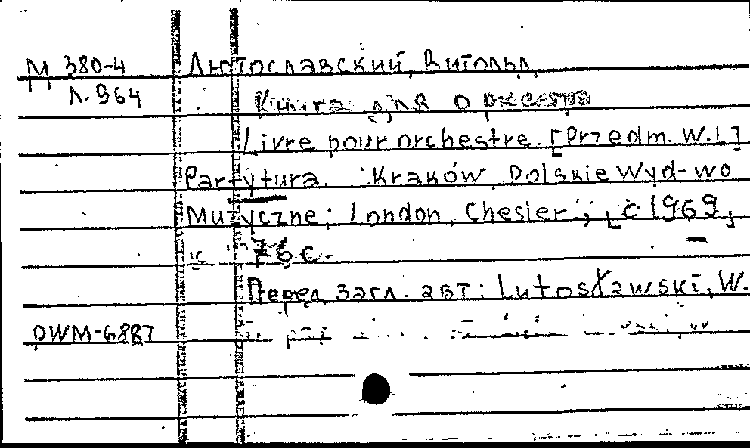 М 380-4 Лютославский, Витольд.
Л. 964 Книга для оркестра
Livre pour orchestre. [Przedm. W.L]
Partytura. Kraków, Polskie Wyd-wo
Muzyczne; London, Chester, [c 1969]
76 с.
Перед загл. авт: Lutosławski, W.
PWM-6887